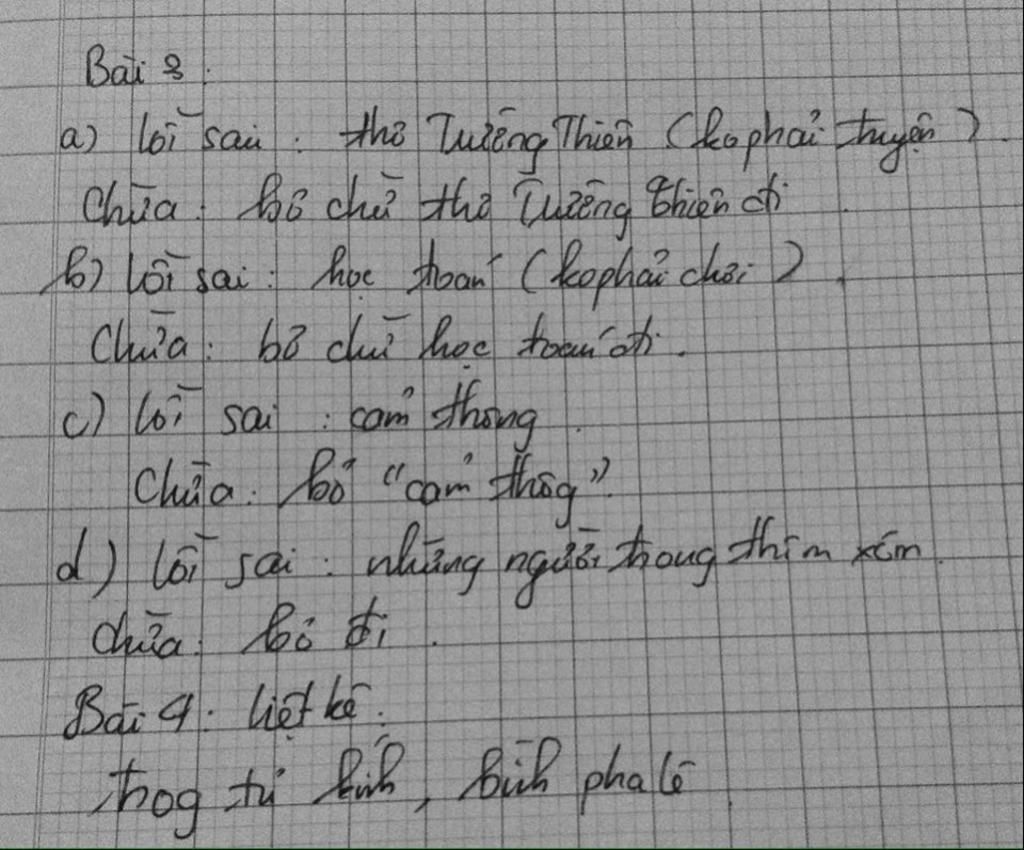 Bài 3:
a) lỗi sai: thơ Tường Thiên (ko phải truyện).
Chữa: bỏ chữ thơ Tường thiên đi.
b) lỗi sai: học toán (ko phải chơi).
Chữa: bỏ chữ học toán đi.
c) lỗi sai: cảm thông.
Chữa: bỏ "cảm thôg".
d) lỗi sai: những người trong thôn xóm.
Chữa: bỏ đi.
Bài 4: liệt kê:
trog tủ kính, bình pha lê.